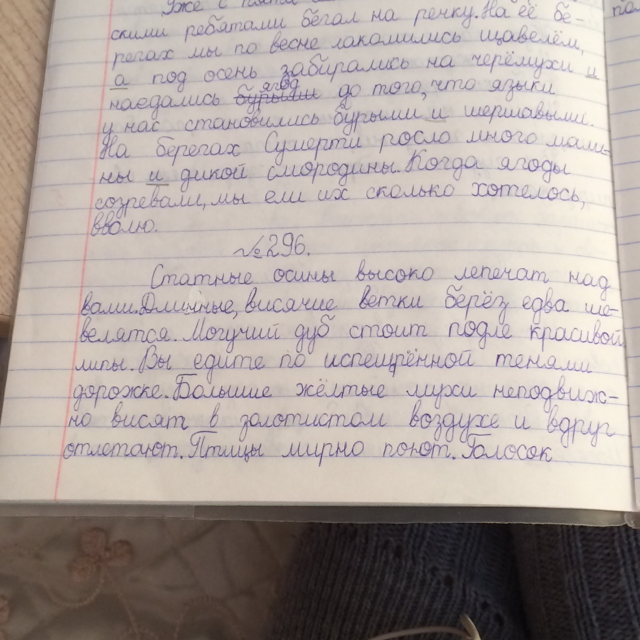 Уже с
скими ребятами бегал на речку. На её бе-
регах мы по весне лакомились щавелём,
а под осень забирались на черёмухи и
ягод
наедались бурыми до того, что языки
у нас становились бурыми и шершавыми.
На берегах Сумерти росло много мали-
ны и дикой смородины. Когда ягоды
созревали, мы ели их сколько хотелось,
вволю.
№296.
Статные осины высоко лепечат над
вами. Длинные, висячие ветки берёз едва ше-
велятся. Могучий дуб стоит подле красивой
липы. Вы едите по испещрённой тенями
дорожке. Большие жёлтые мухи неподвиж-
но висят в золотистом воздухе и вдруг
отлетают. Птицы мирно поют. Голосок